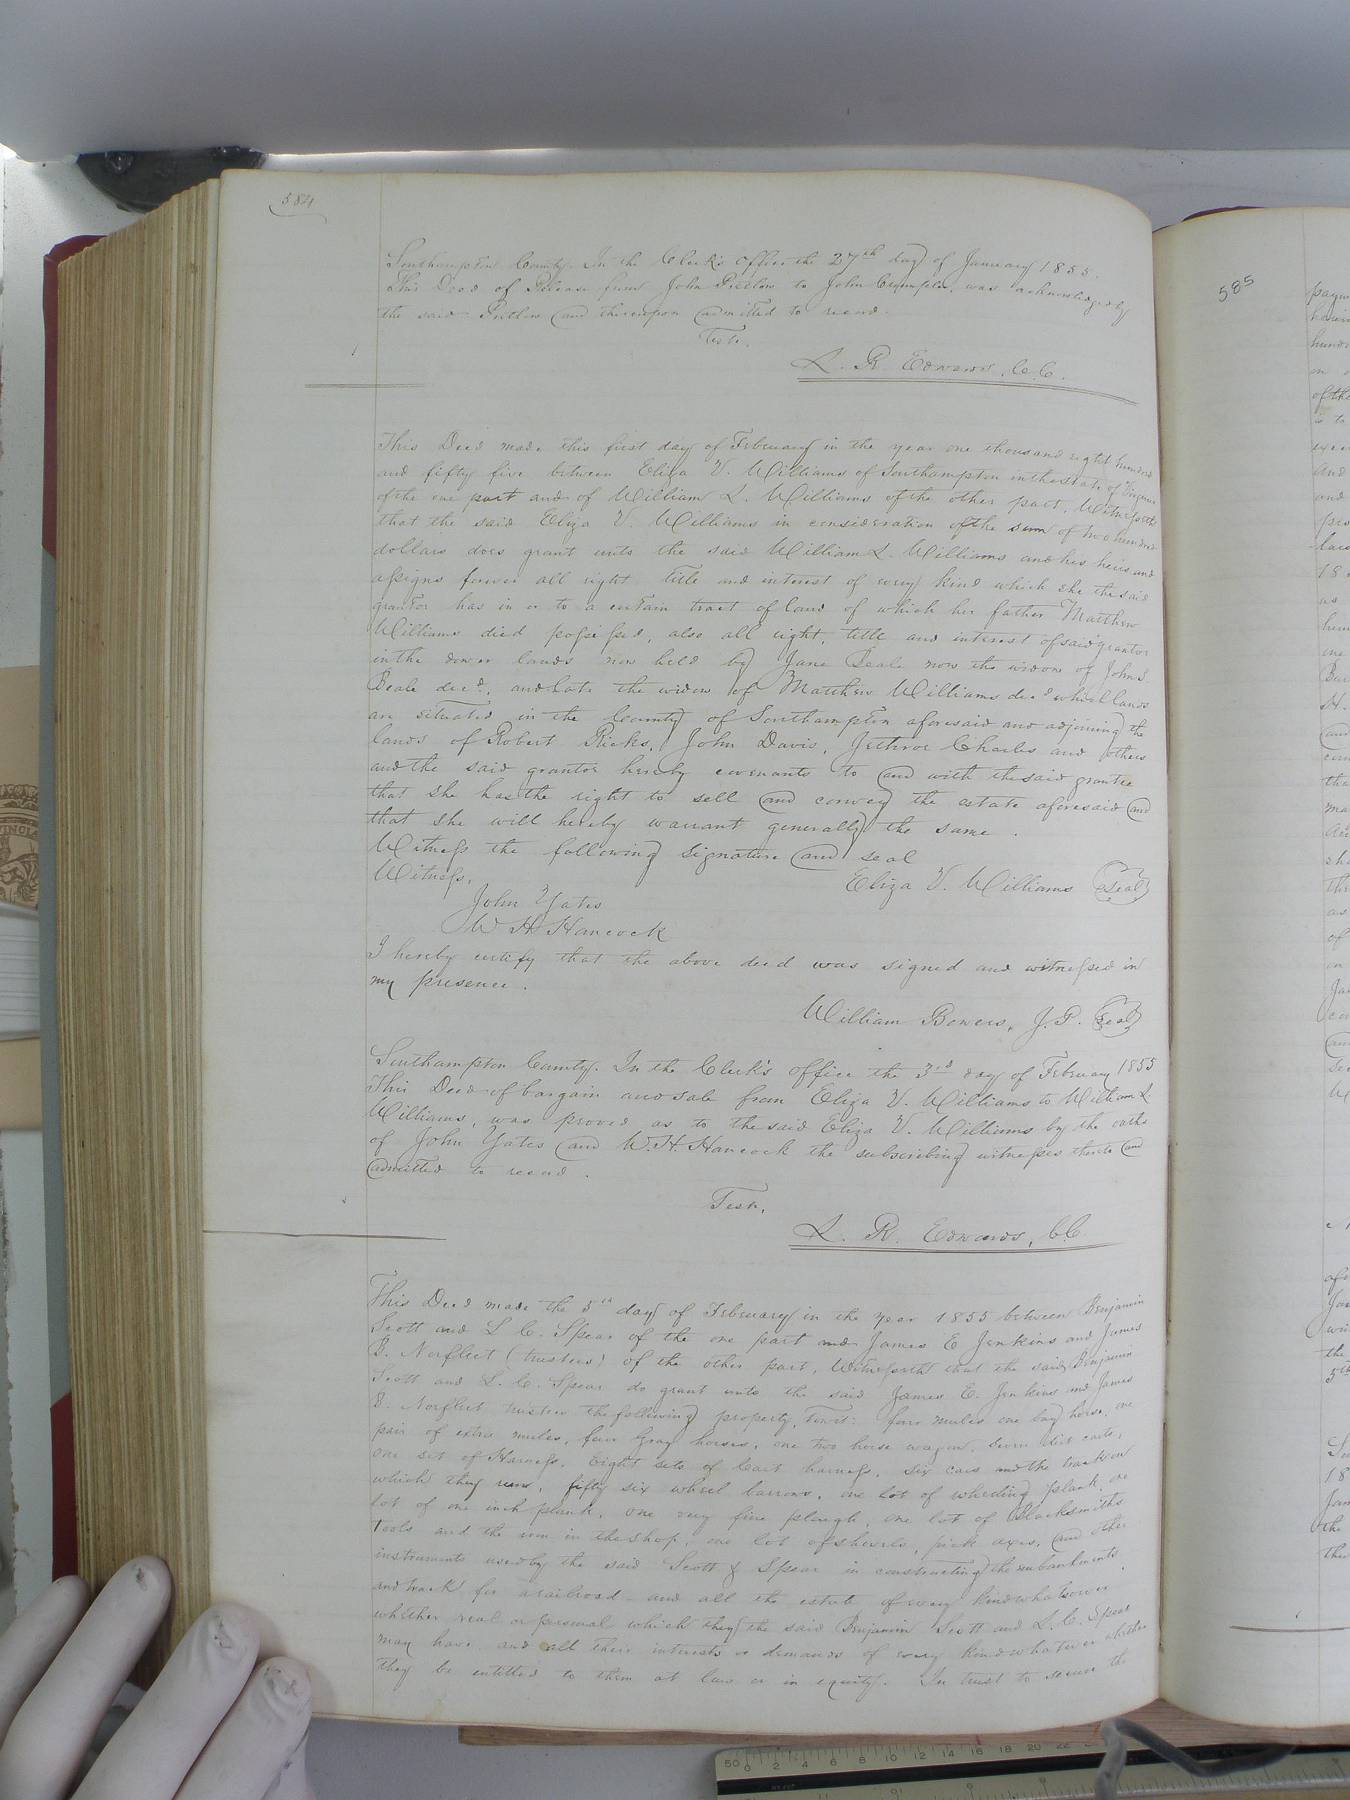 584
Southampton County. In the Clerk's office the 27th day of January 1855.
This Deed of Release from John Pretlow to John Crumpler, was acknowledged by
the said Pretlow and thereupon admitted to record.
Teste.
L. R. Edwards, C.C.
This Deed made this first day of February in the year one thousand eight hundred
and fifty five between Eliza V. Williams of Southampton in the state of Virginia
of the one part and of William L. Williams of the other part, Witnesseth
that the said Eliza V. Williams in consideration of the sum of two hundred
dollars does grant unto the said William L. Williams and his heirs and
assigns forever all right title and interest of every kind which she the said
grantor has in or to a certain tract of land of which her father Matthew
Williams died possessed, also all right, title and interest of said grantor
in the dower lands now held by Jane Beale now the widow of John S.
Beale decd, and late the widow of Matthew Williams decd which lands
are situated in the County of Southampton aforesaid and adjoining the
lands of Robert Ricks, John Davis, Jethroe Charles and others
and the said grantor hereby covenants to and with the said grantee
that she has the right to sell and convey the estate aforesaid and
that she will hereby warrant generally the same.
Witness the following signature and seal
Witness,
Eliza V. Williams Seal
John Yates
W H Hancock
I hereby certify that the above deed was signed and witnessed in
my presence.
William Bowers, J.P. Seal
Southampton County. In the Clerk's office the 3rd day of February 1855
This Deed of bargain and sale from Eliza V. Williams to William L.
Williams, was proved as to the said Eliza V. Williams by the oaths
of John Yates and W.H. Hancock the subscribing witnesses thereto and
admitted to record.
Teste,
L. R. Edwards, C.C.
This Deed made the 5th day of February in the year 1855 between Benjamin
Scott and L C. Spear of the one part and James E Jenkins and James
B. Norfleet (trustees) of the other part, Witnesseth that the said Benjamin
Scott and L. C. Spear do grant unto the said James E. Jenkins and James
B. Norfleet trustees the following property, Towit: four mules one bay horse, one
pair of extra mules, four Gray horses, one two horse wagon, seven dirt carts,
one set of Harness, Eight sets of Cart harness, six cars and the track on
which they run, fifty six wheel barrows, one lot of wheeling plank, one
lot of one inch plank, one very fine plough, one lot of Blacksmiths
tools and the iron in the shop, one lot of shovels, pick axes, and other
instruments used by the said Scott & Spear in constructing the embankments
and track for a railroad and all the estate of every kind whatsoever
whether real or personal which they the said Benjamin Scott and L. C. Spear
may have and all their interests or demands of every kind whatever whether
they be entitled to them at law or in equity. In trust to secure the
585